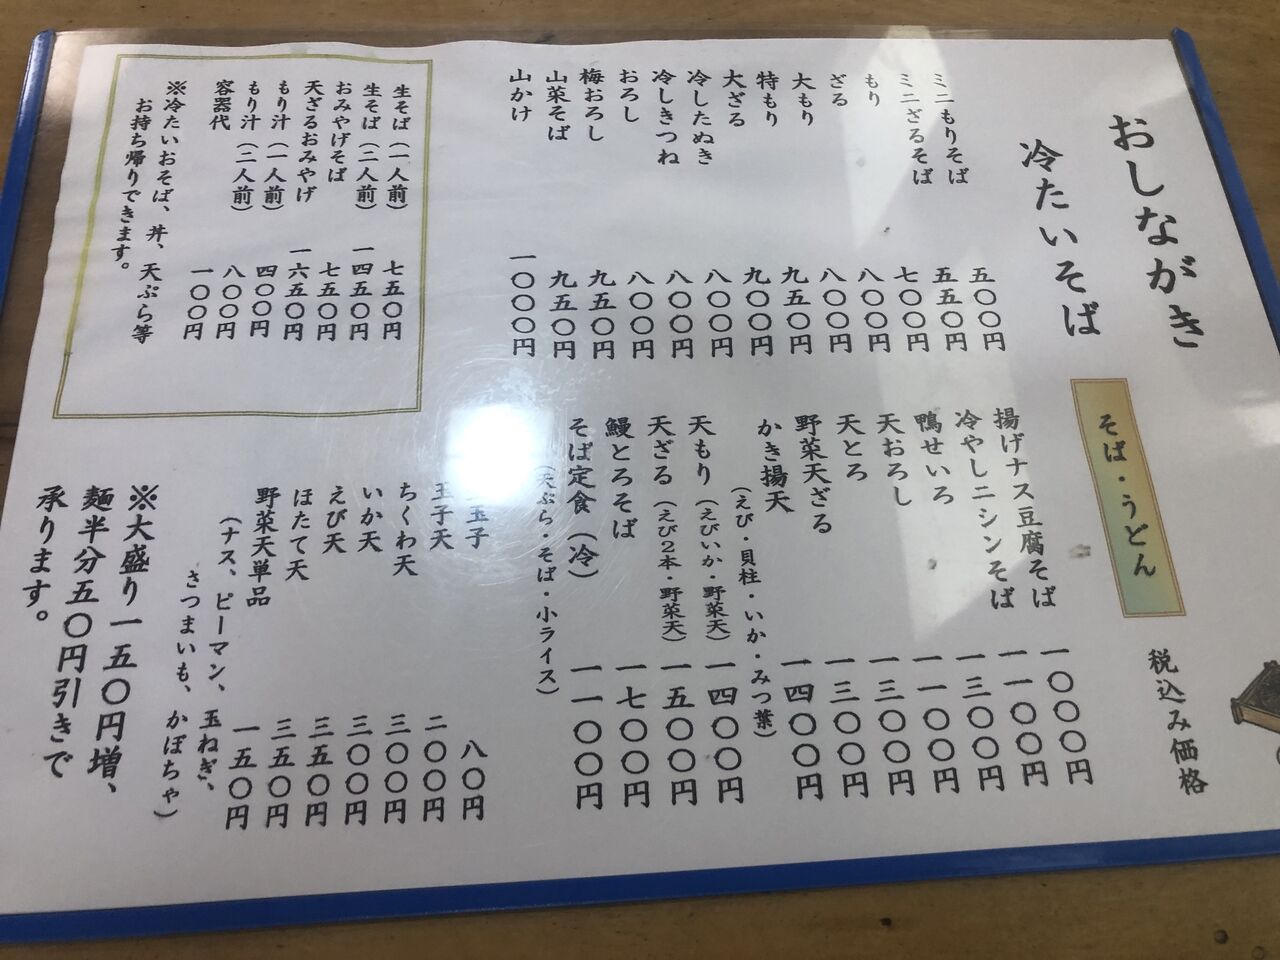 おしながき
冷たいそば
そば・うどん
税込み価格
ミニもりそば 五〇〇円
ミニざるそば 五五〇円
もり 七〇〇円
ざる 八〇〇円
大もり 八〇〇円
特もり 九五〇円
大ざる 九〇〇円
冷したぬき 八〇〇円
冷しきつね 八〇〇円
おろし 八〇〇円
梅おろし 九五〇円
山菜そば 九五〇円
山かけ 一〇〇〇円
生そば（一人前） 七五〇円
生そば（二人前） 一四五〇円
おみやげそば 七五〇円
天ざるおみやげ 一六五〇円
もり汁（一人前） 四〇〇円
もり汁（二人前） 八〇〇円
容器代 一〇〇円
※冷たいおそば、丼、天ぷら等
お持ち帰りできます。
揚げナス豆腐そば 一〇〇〇円
冷やしニシンそば 一一〇〇円
鴨せいろ 一三〇〇円
天おろし 一一〇〇円
天とろ 一三〇〇円
野菜天ざる 一三〇〇円
かき揚天 一四〇〇円
（えび・貝柱・いか・みつ葉）
天もり（えびいか・野菜天） 一四〇〇円
天ざる（えび２本・野菜天） 一五〇〇円
鰻とろそば 一七〇〇円
そば定食（冷） 一一〇〇円
（天ぷら・そば・小ライス）
玉子 八〇円
玉子天 二〇〇円
ちくわ天 三〇〇円
いか天 三〇〇円
えび天 三五〇円
ほたて天 三五〇円
野菜天単品 一五〇円
（ナス、ピーマン、玉ねぎ、
さつまいも、かぼちゃ）
※大盛り一五〇円増、
麺半分五〇円引きで
承ります。